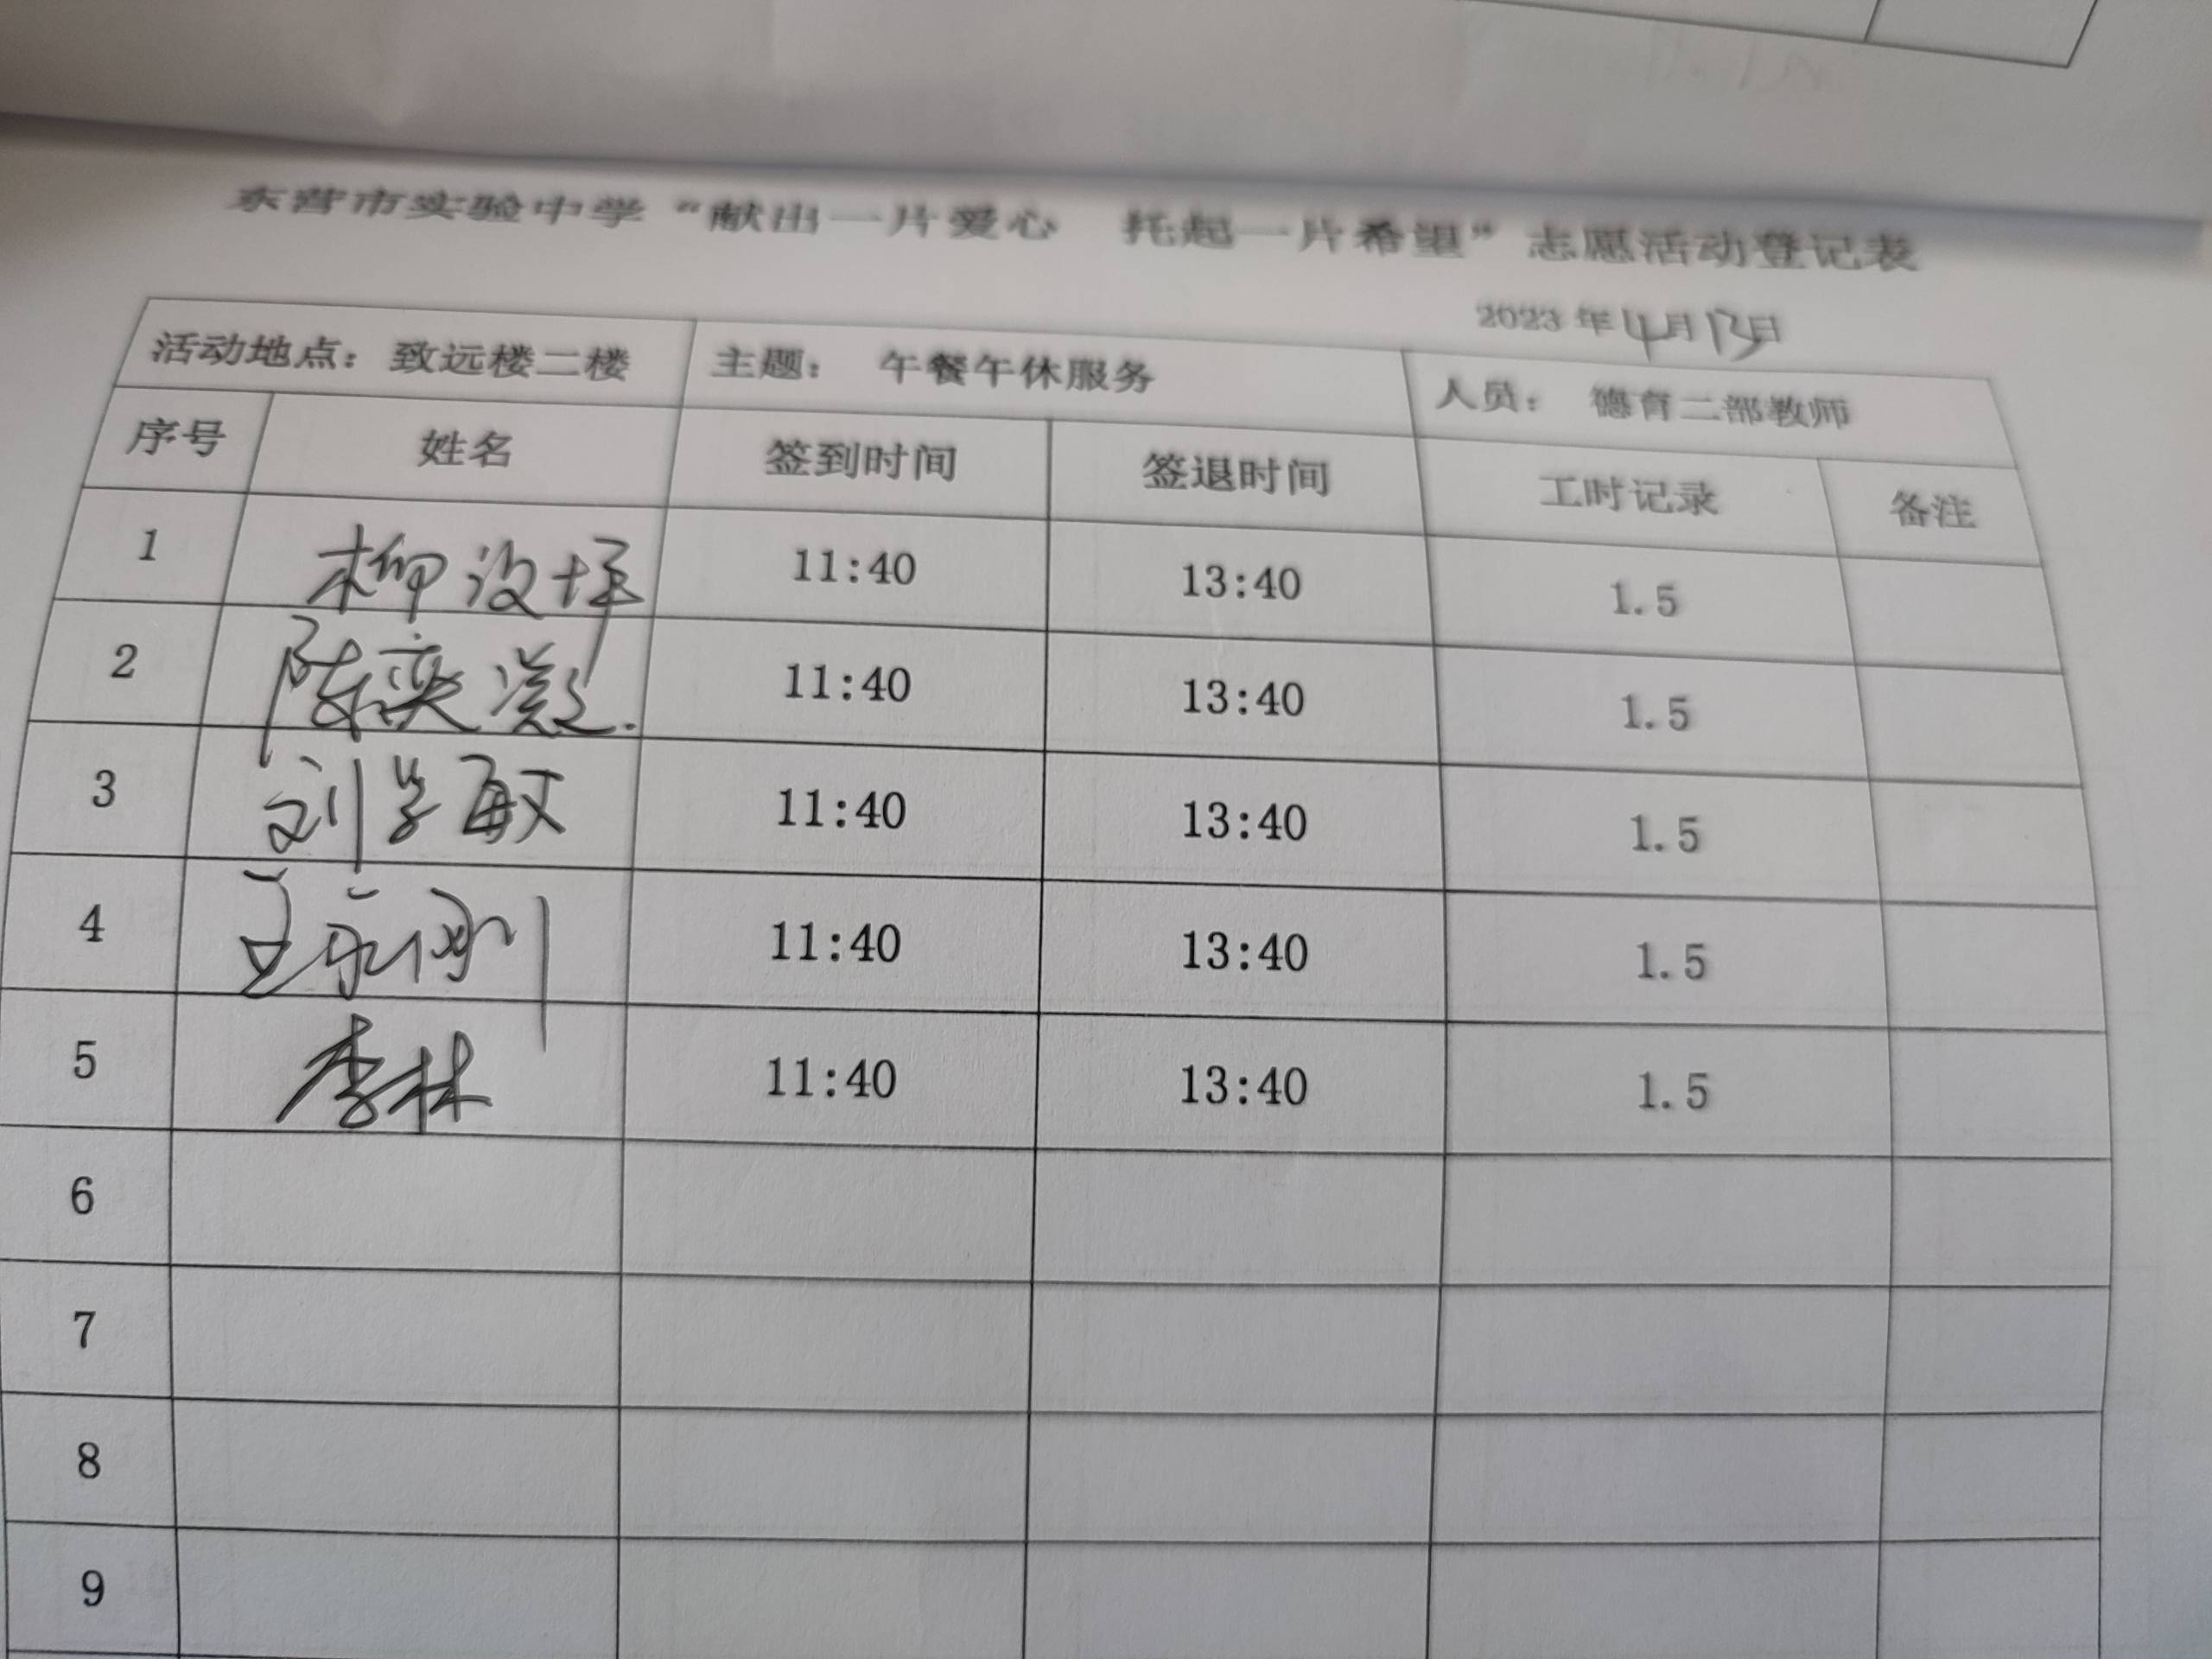 东营市实验中学“献出一片爱心 托起一片希望”志愿活动登记表
2023年4月13日
活动地点：致远楼二楼 主题： 午餐午休服务 人员： 德育二部教师
序号 姓名 签到时间 签退时间 工时记录 备注
1 柳 11:40 13:40 1.5
2 陈奕 11:40 13:40 1.5
3 刘学敏 11:40 13:40 1.5
4 11:40 13:40 1.5
5 李林 11:40 13:40 1.5
6
7
8
9